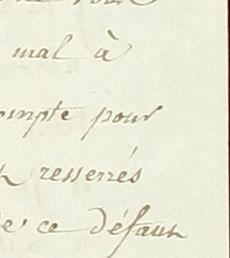 mal à
ompte pour
resserrés
ce défaut